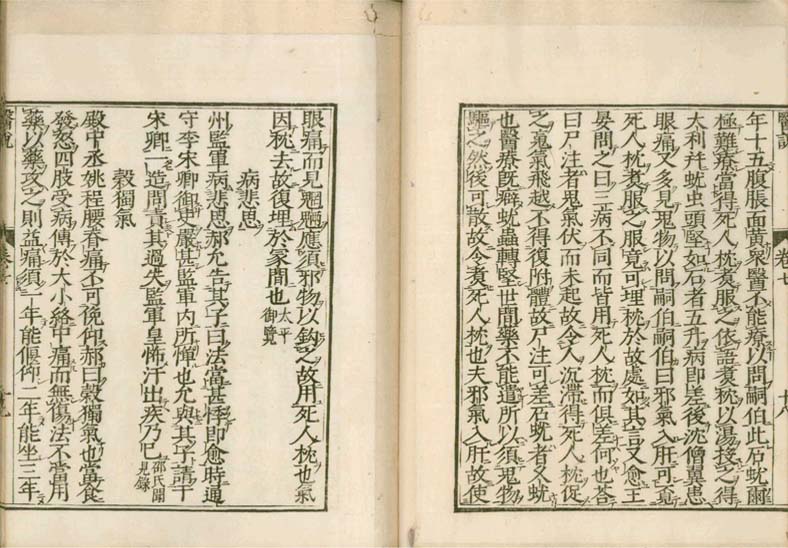 醫説
年十五腹脹面黄衆醫不能療以問嗣伯此石蚘爾
極難療當得死人枕煑服之依語煑枕以湯投之得
大利幷蚘虫頭堅如石者五升病即差後沈僧翼患
眼痛又多見鬼物以問嗣伯嗣伯曰邪氣入肝可覔
死人枕煑服之服竟可埋枕於故處如其言又愈王
晏問之曰三病不同而皆用死人枕而俱差何也荅
曰尸注者鬼氣伏而未起故令人沉滯得死人枕促
之䰟氣飛越不得復附體故尸注可差石蚘者久蚘
也醫療旣癖蚘蟲轉堅世間藥不能遣所以須鬼物
驅之然後可散故令煑死人枕也夫邪氣入肝故使
眼痛而見魍魎應須邪物以鉤之故用死人枕也氣
因枕去故復埋於冢間也太平御覽
病悲思
州監軍病悲思郝允告其子曰法當甚悸即愈時通
守李宋卿御史嚴甚監軍内所憚也允與其子請于
宋卿一造問責其過失監軍皇怖汗出疾乃已邵氏聞見錄
穀獨氣
殿中丞姚程腰脊痛不可俛仰郝曰穀獨氣也當食
發怒四肢受病傳於大小絡中痛而無傷法不當用
藥以藥攻之則益痛須一年能偃仰二年能坐三年
醫説